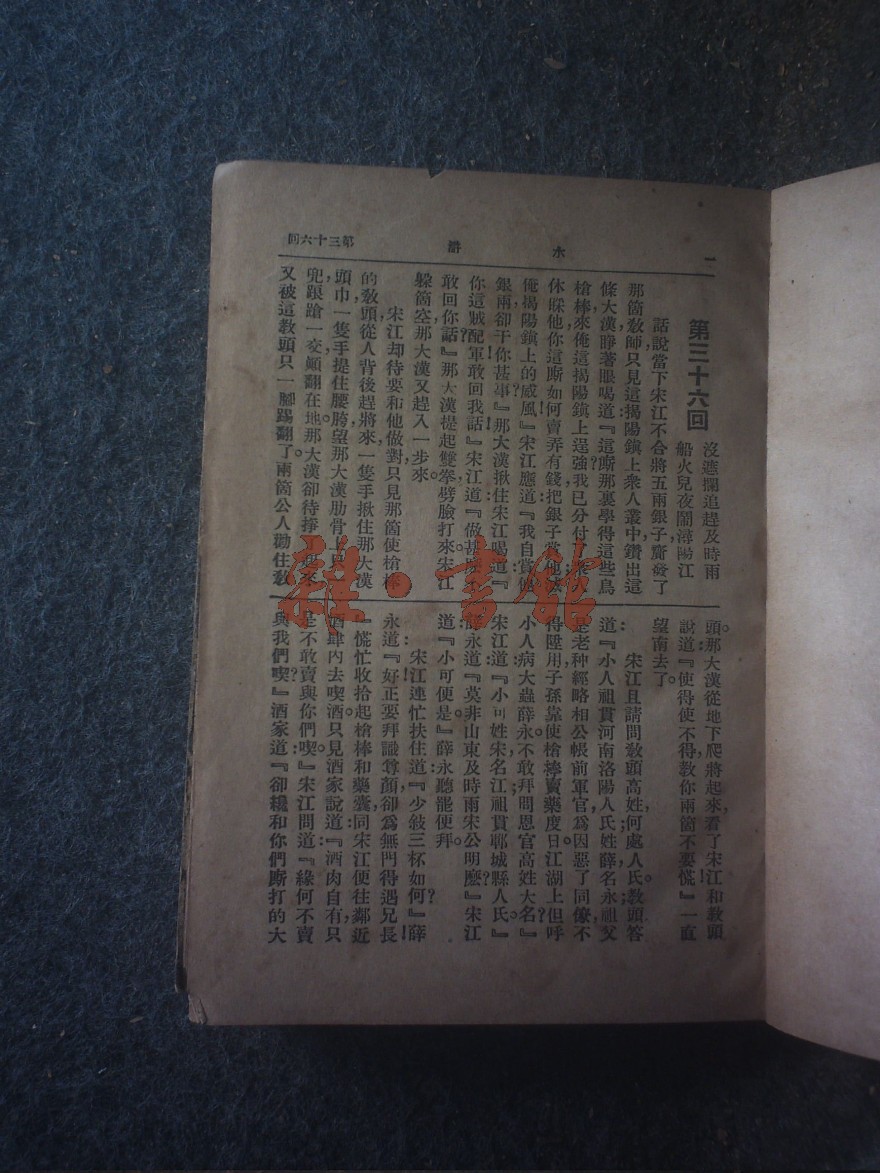 二 水滸 第三十六回
第三十六回
沒遮攔追趕及時雨
船火兒夜鬧潯陽江
話說當下宋江不合將五兩銀子齎發了
那箇敎師,只見這揭陽鎭上衆人叢中鑽出這
條大漢睜著眼喝道:『這廝那裏學得這些鳥
槍棒,來俺這揭陽鎭上逞強?我已分付了衆人
休睬他,你這廝如何賣弄有錢,把銀子賞他,滅
俺揭陽鎭上的威風?』宋江應道:『我自賞他
銀兩,卻干你甚事!』那大漢揪住宋江喝道:『
你這賊配軍!敢回我話!』宋江道:『做甚麼不
敢回你話?』那大漢提起雙拳劈臉打來。宋江
躲箇空。那大漢又趕入一步來。
宋江却待要和他做對,只見那箇使槍棒
的敎頭從人背後趕將來,一隻手揪住那大漢
頭巾,一隻手提住腰胯,望那大漢肋骨上只
兜,踉蹌一交,顚翻在地。那大漢卻待掙起來,
又被這敎頭只一脚踢翻了。兩箇公人勸住敎
頭。那大漢從地下爬將起來,看了宋江和敎頭,
說道:『使得使不得,敎你兩箇不要慌!』一直
望南去了。
宋江且請問:敎頭高姓;何處人氏。敎頭答
道:『小人祖貫河南洛陽人氏;姓薛,名永;祖父
是老种經略相公帳前軍官,爲因惡了同僚,不
得陞用,子孫靠使槍棒賣藥度日。江湖上但呼
小人病大蟲薛永。不敢拜問恩官高姓大名?』
宋江道:『小可姓宋,名江,祖貫鄆城縣人氏。』
薛永道:『莫非山東及時雨宋公明麽?』宋江
道:『小可便是。』薛永聽罷便拜。
宋江連忙扶住道:『少敍三杯如何?』薛
永道:『好!正要拜識尊顏,卻爲無門得遇兄長!
』慌忙收拾起槍棒和藥囊,同宋江便往鄰近
酒肆內去喫酒。只見酒家說道:『酒肉自有,只
是不敢賣與你們喫。』宋江問道:『緣何不賣
與我們喫?』酒家道:『卻纔和你們廝打的大
雜·書館